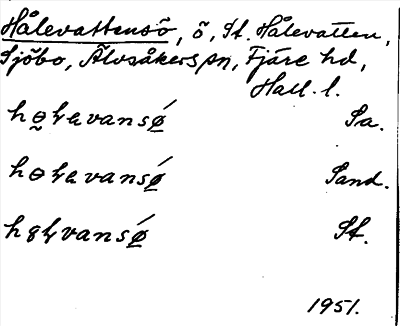 Hålevattensö, ö, St. Hålevatten,
Sjöbo, Älvsåkers sn, Fjäre hd,
Hall. l.
hɵ̰ɬavansǿ Sa.
hɵɬavansǿ Sand.
St.
1951.